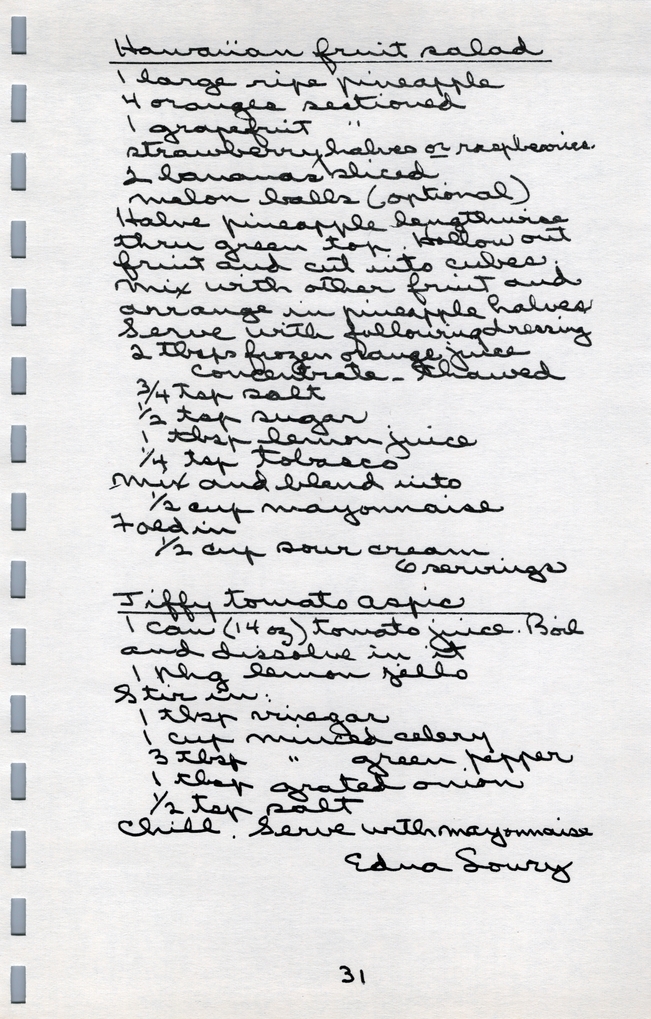 Hawaiian fruit salad
1 large ripe pineapple
4 oranges sectioned
1 grapefruit "
strawberry halves or raspberries.
2 bananas sliced
melon balls (optional)
Halve pineapple lengthwise
thru green top. Hollow out
fruit and cut into cubes.
Mix with other fruit and
arrange in pineapple halves
Serve with following dressing
2 tbsps frozen orange juice
concentrate - thawed
3/4 tsp salt
1/2 tsp sugar
1 tbsp lemon juice
1/4 tsp tobasco
Mix and blend into
1/2 cup mayonnaise
Fold in
1/2 cup sour cream
6 servings
Jiffy tomato aspic
1 can (14 oz) tomato juice. Boil
and dissolve in it
1 pkg lemon jello
Stir in:
1 tbsp vinegar
1 cup minced celery
3 tbsp " green pepper
1 tbsp grated onion
1/2 tsp salt
Chill. Serve with mayonnaise
Edna Soury
31